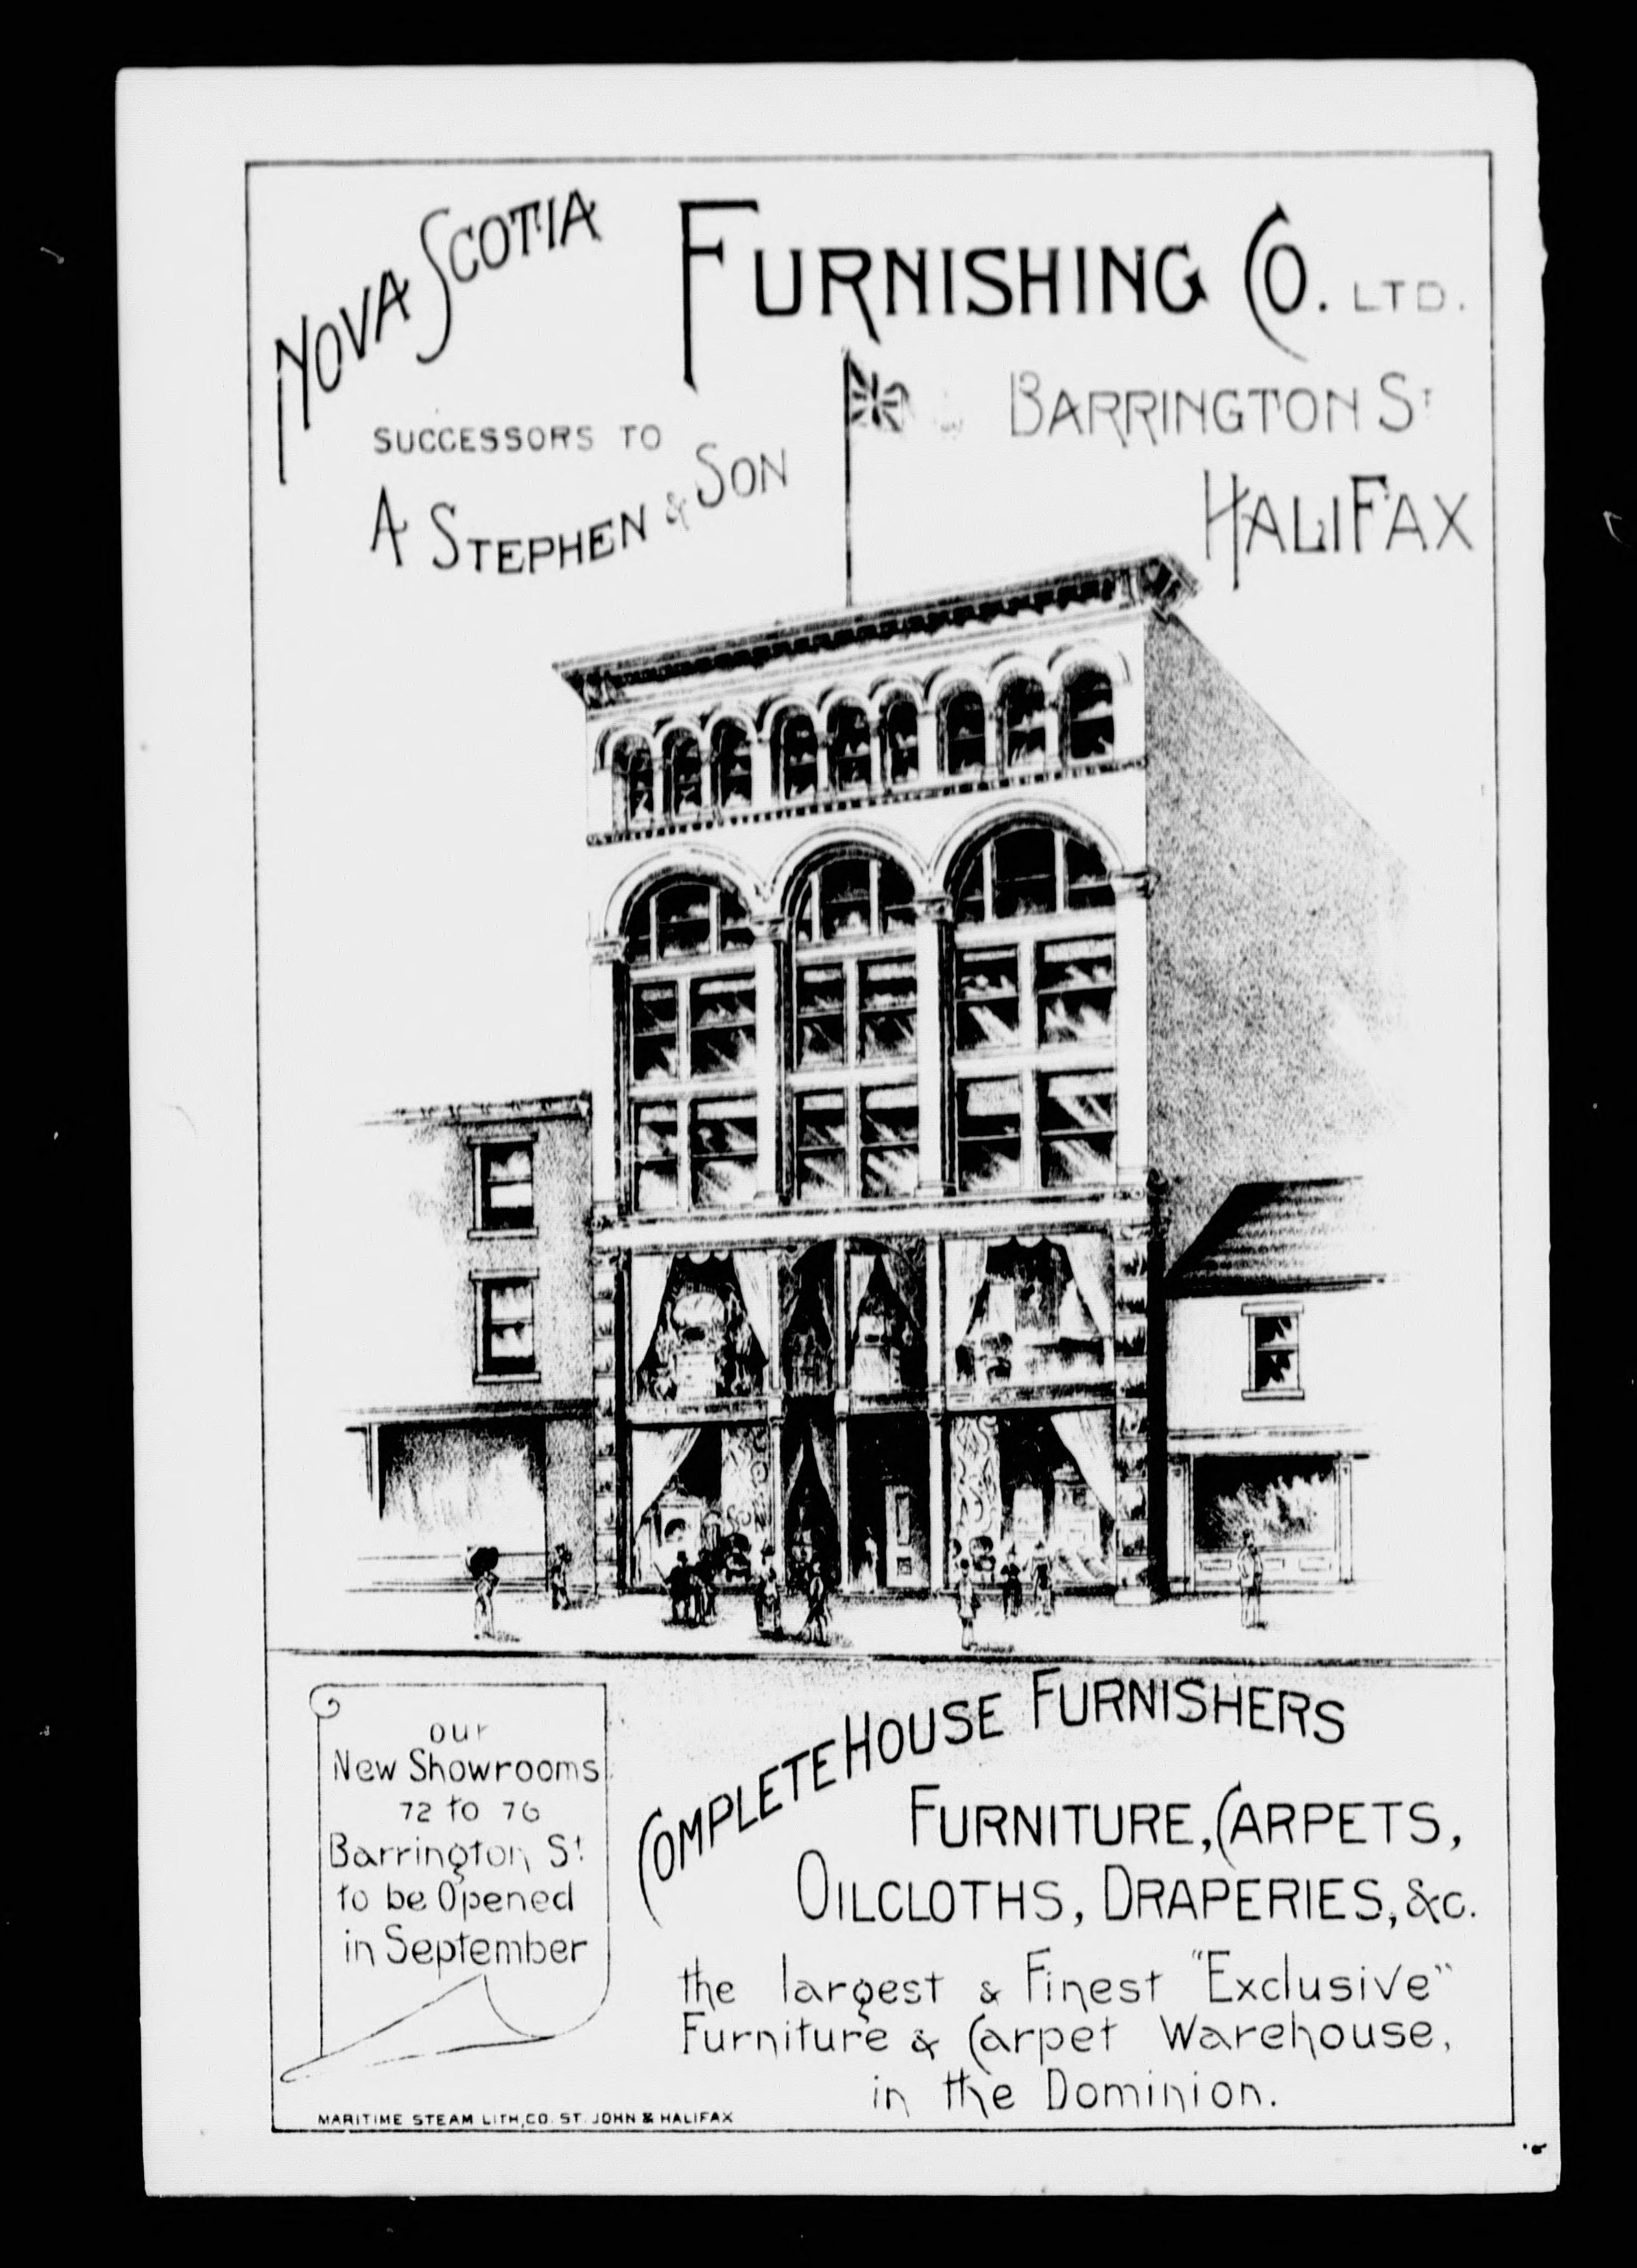 NOVA SCOTIA FURNISHING CO. LTD.
SUCCESSORS TO
A STEPHEN & SON
BARRINGTON ST
HALIFAX
our
New Showrooms
72 to 76
Barrington St
to be Opened
in September
COMPLETE HOUSE FURNISHERS
FURNITURE, CARPETS,
OILCLOTHS, DRAPERIES, &c.
the largest & Finest "Exclusive"
Furniture & Carpet Warehouse,
in the Dominion.
MARITIME STEAM LITH, CO. ST. JOHN & HALIFAX